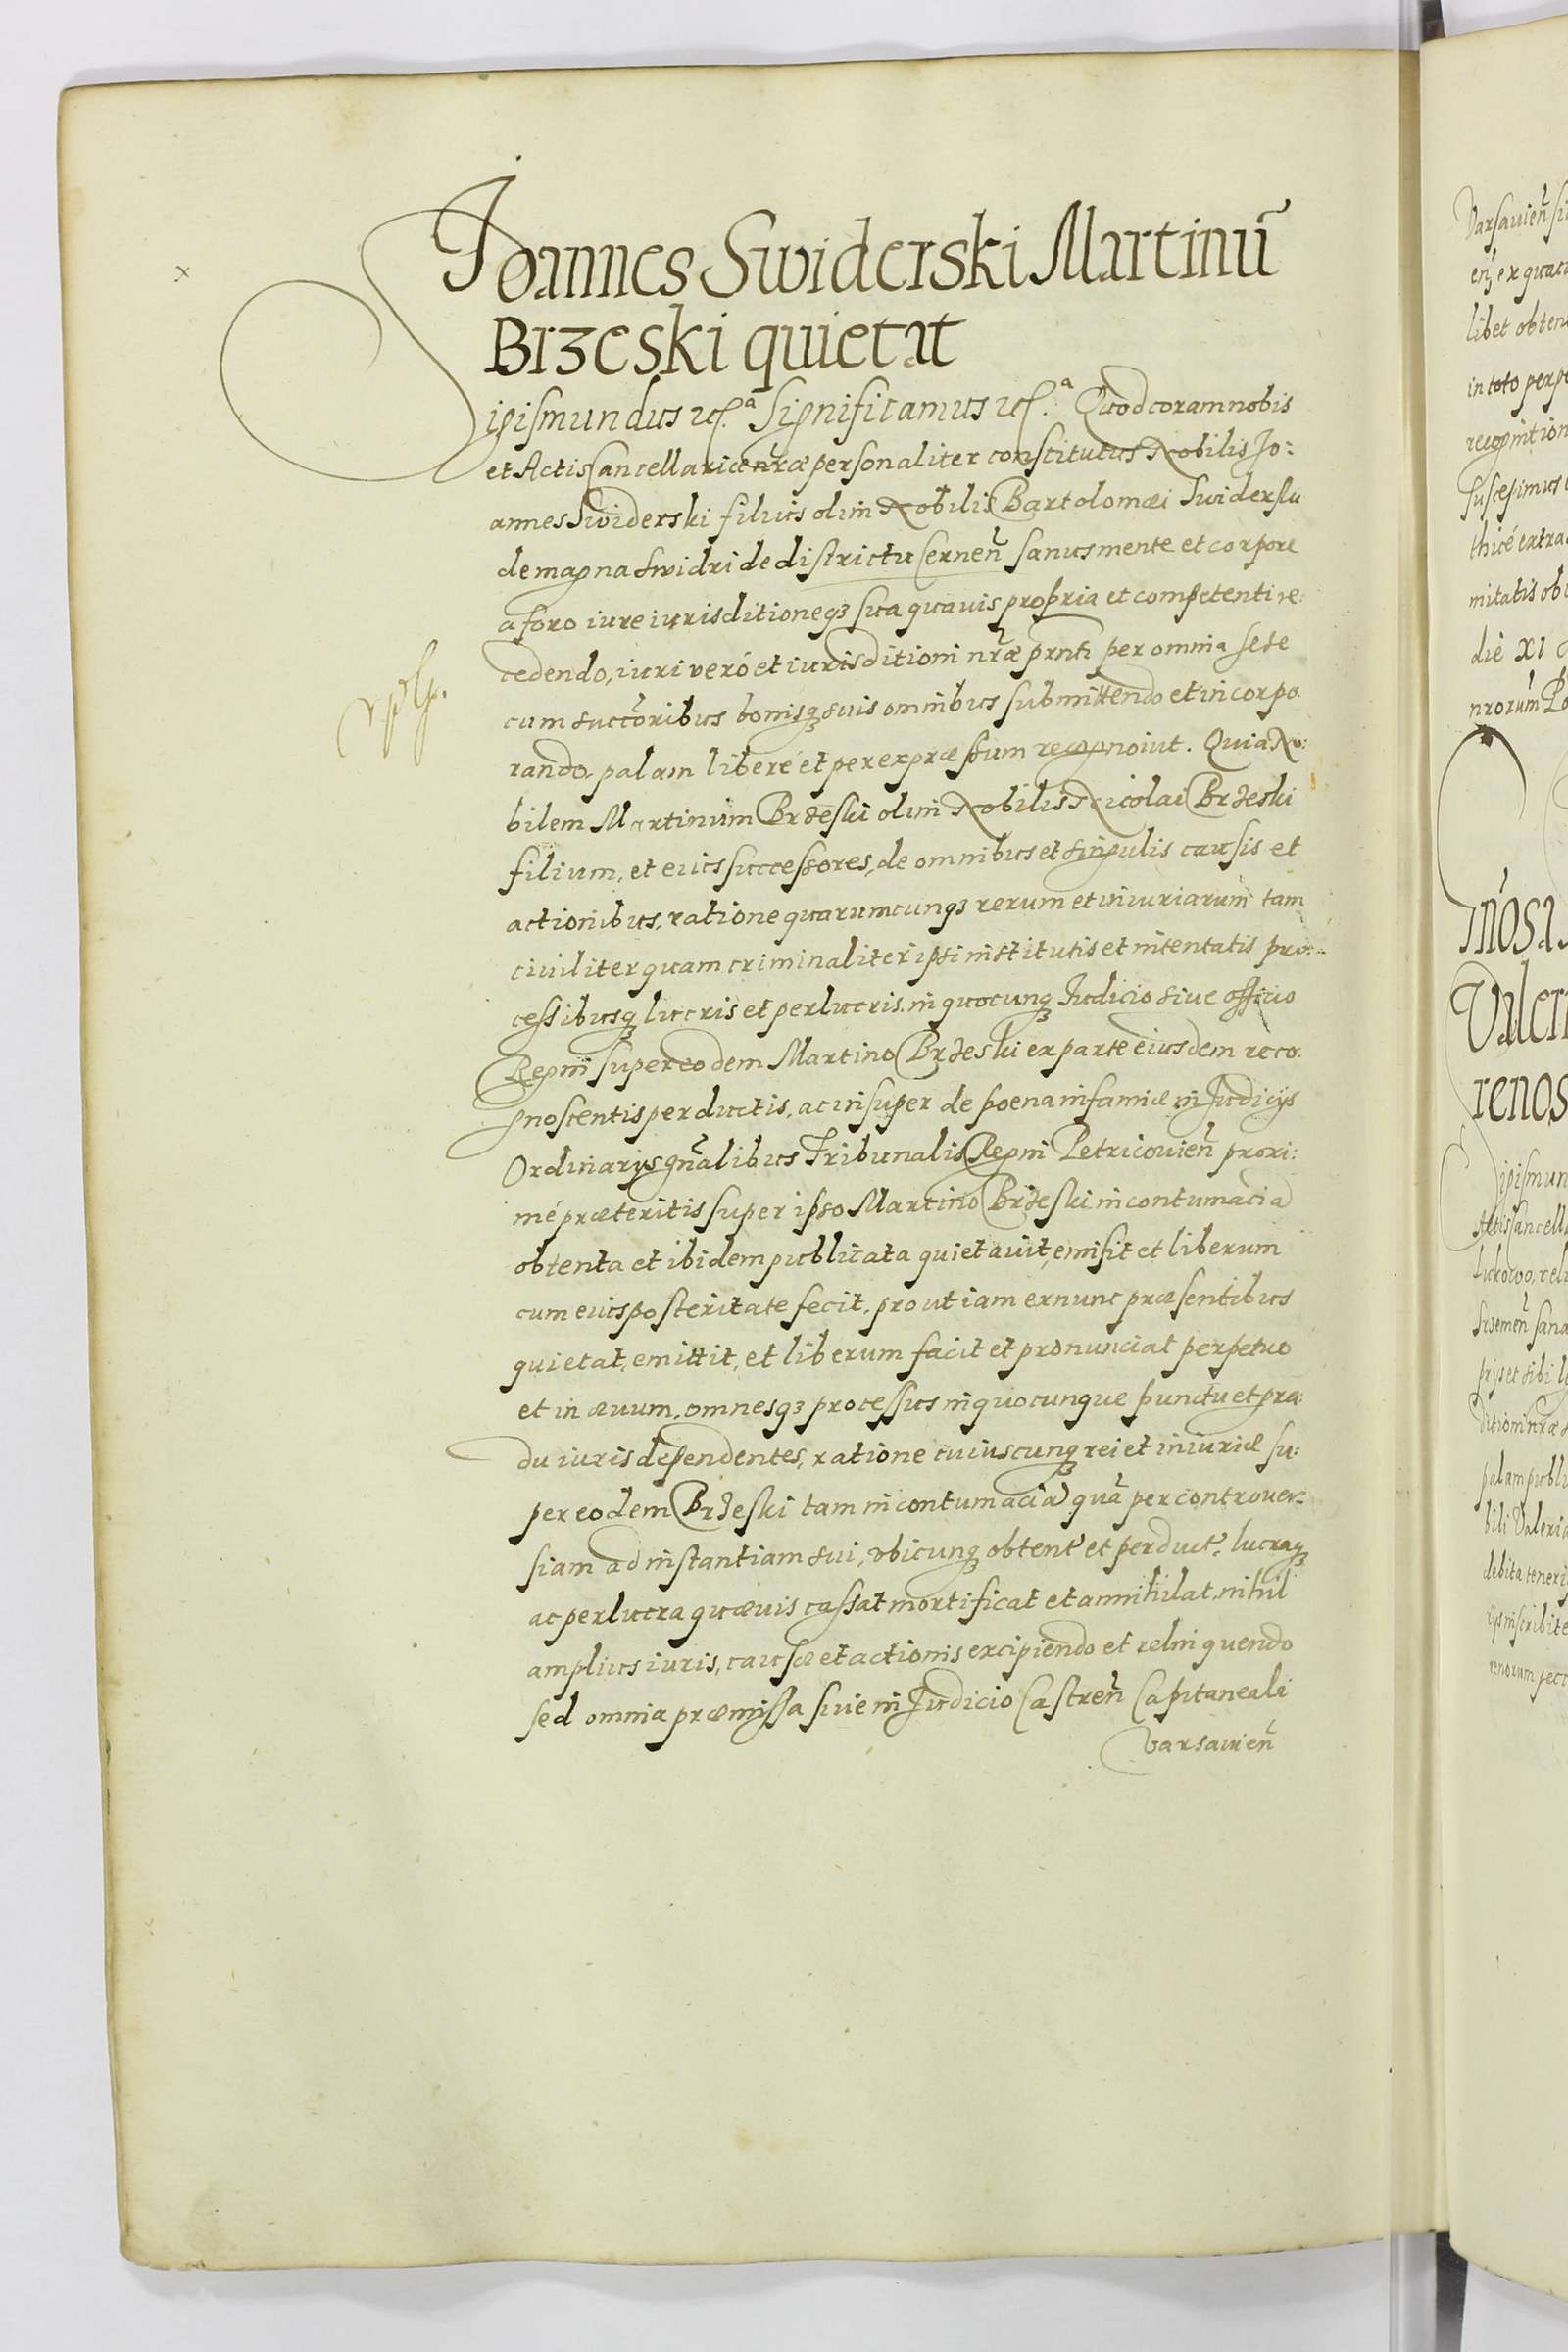 Joannes Swiderski Martinũ
Brzeski quietat
Sigismundus etc.ª Significamus etc.ª Quod coram nobis
et Actis Cancellariae nrae personaliter constitutus Nobilis Jo:
annes Swiderski filius olim Nobilis Bartolomaei Swiderski
de magna Swidri de districtu Cernen̄ sanus mente et corpore
a foro iure iurisditioneqʒ sua quavis propria et competenti re:
cedendo, iuri veró et iurisditioni nr̃ae prnti per omnia sese
cum succ̃oribus bonisqʒ suis omnibus submittendo et incorpo.
rando, palam liberé et per expraessum recognoiut. Quia No:
bilem Martinum Brzeski olim Nobilis Nicolai Brzeski
filium, et eius successores, de omnibus et singulis causis et
actionibus, ratione quarumcunqʒ rerum et iniuriarum tam
civiliter quam criminaliter ipsi institutis et intentatis pro:
cessibusqʒ lucris et perlucris in quocunqʒ Judicio sive officio
Regni super eodem Martino Brzeski ex parte eiusdem reco:
gnoscentis perductis, ac insuper de poena infamiae in Judicijs
Ordinarijs gñalibus Tribunalis Regni Petricovien̄ proxi:
mé praeteritis super ipso Martino Brzeski in contumacia
obtenta et ibidem publicata quietavit, emisit et liberum
cum eius posteritate fecit, prout iam ex nunc praesentibus
quietat, emittit, et liberum facit et pronunciat perpetuo
et in aevum, omnesqʒ processus in quocunque punctu et gra:
du iuris dependentes, ratione cuiuscunqʒ rei et iniuriae su:
per eodem Brzeski tam in contumacia quã per controver:
siam ad instantiam sui, ubicunqʒ obtent' et perduct', lucraqʒ
ac perlucra quaevis cassat mortificat et annihilat, nihil
amplius iuris, causae et actionis excipiendo et relinquendo
sed omnia praemissa sive in Judicio Castren̄ Capitaneali
Varsavien̄
Varsavien̄ si
libet obten
in toto perpe
recognition
suscepimus
thicé extra
mitatis ob
die XI
nrorum
Valer
renos
Sigismun
Actis Cancell
palam publi
bili Valeria
debita teneri